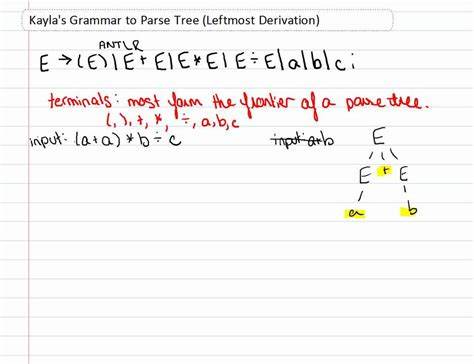 Kayla's Grammar to Parse Tree (Leftmost Derivation)
ANTLR
E → (E) | E + E | E * E | E ÷ E | a | b | c ;
terminals: most form the frontier of a parse tree.
(, ), +, *, ÷, a, b, c
input: (a+a) * b ÷ c
input: a+b
E
E + E
a b